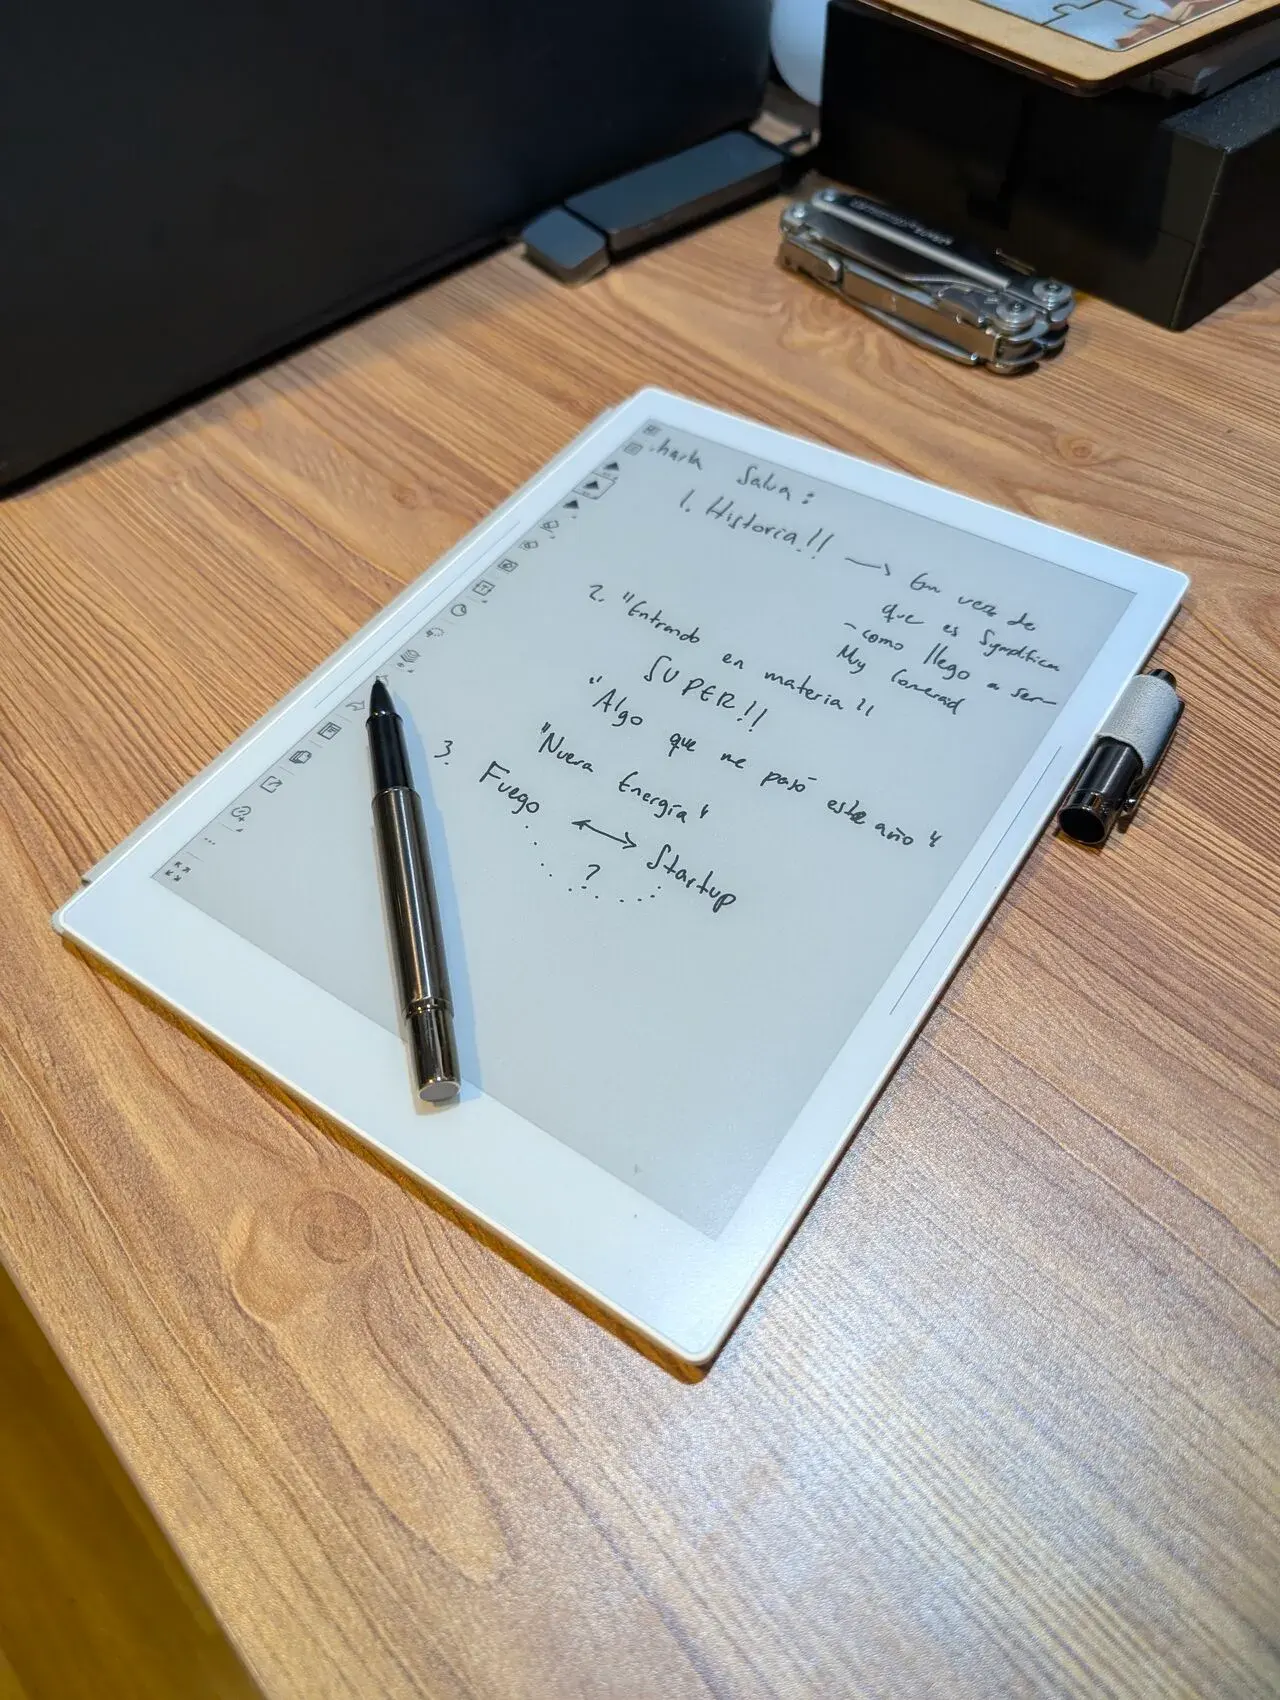 charla Salva:
1. Historia!! → En vez de
que es Symplifica
- como llego a ser
Muy Comercial
2. "Entrando en materia"
SUPER!!
"Algo que me pasó este año"
"Nueva Energía"
3. Fuego ↔ Startup
?